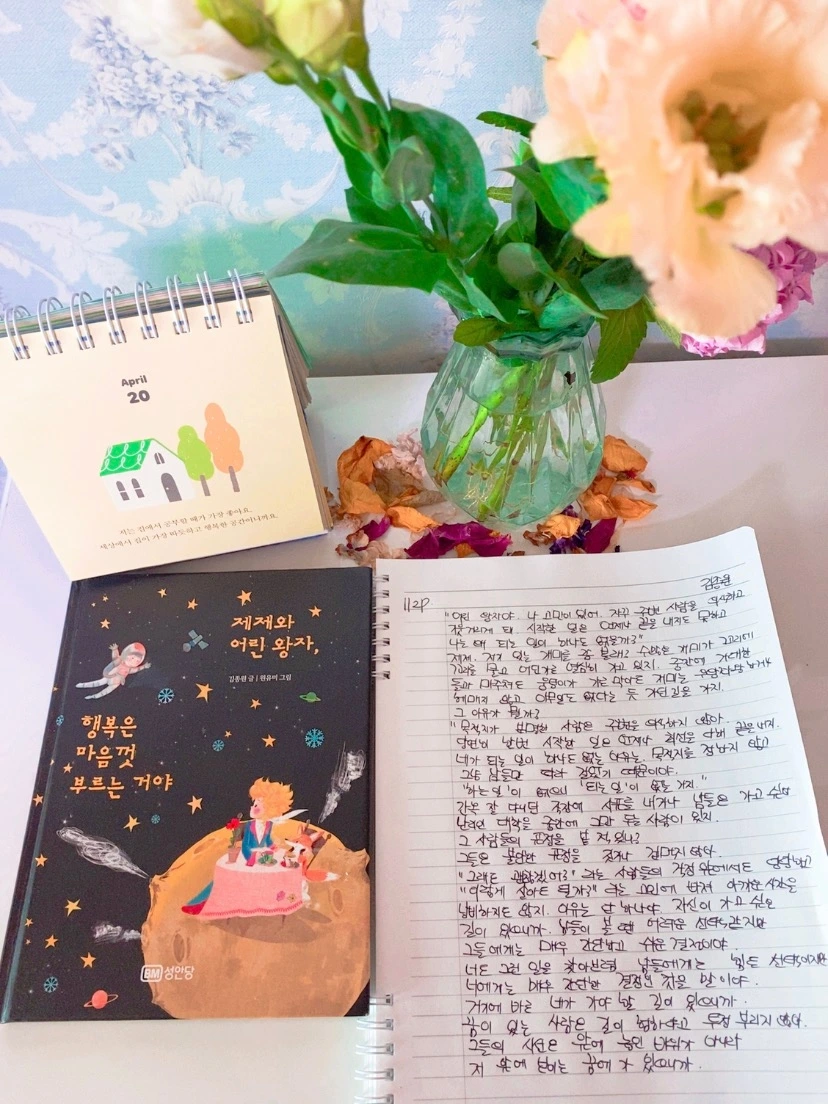 April
20
저는 집에서 공부할 때가 가장 좋아요.
세상에서 집이 가장 따뜻하고 행복한 공간이니까요.
제제와
어린 왕자,
김종원 글 | 원유미 그림
행복은
마음껏
부르는 거야
BM 성안당
김종원
112P
"어린 왕자야. 나 고민이 있어. 자꾸 주변 사람을 의식하고
흔들리게 돼. 시작한 일은 언제나 끝을 내지도 못하고
나는 왜 되는 일이 하나도 없을까?"
제제. 저기 있는 개미들 좀 볼래? 수많은 개미가
먹이를 물고 어딘가로 열심히 가고 있지. 중간에 거대한
돌과 마주쳐도 웅덩이가 가로막아도 개미는
헤매지 않고 아무일도 없다는 듯 가던길을 가지.
그 이유가 뭘까?
"목적지가 분명한 사람은 주변을 의식하지 않아.
당연히 한번 시작한 일은 언제나 최선을 다해 끝을 내지.
네가 되는 일이 하나도 없는 이유는. 목적지를 정하지 않고
그냥 남들만 따라 걸었기 때문이야.
"하는 일'이 없으니 '되는 일'이 없는 거지."
간혹 잘 다니던 직장에 사표를 내거나 남들은 가고 싶어
난리인 대학을 중간에 그만 두는 사람이 있지.
그 사람들의 표정을 본 적 있니?
그들은 불안한 표정을 짓거나 겁내지 않아.
"그래도 괜찮겠어?" 라는 사람들의 걱정 앞에서도 당당하고
"이렇게 살아도 될까?" 라는 고민에 빠져 아까운 시간을
낭비하지도 않지. 이유는 단 하나야. 자신이 가고 싶은
길이 있으니까. 남들이 볼 땐 어려운 선택같지만
그들에게는 매우 간단하고 쉬운 결정이야.
너도 그런 일을 찾아보렴 남들에게는 '힘든 선택'이지만
너에게는 매우 간단한 결정인 것을 말이야.
거기에 바로 네가 가야 할 길이 있으니까.
꿈이 있는 사람은 길이 험하다고 투정 부리지 않아.
그들의 시선은 앞에 놓인 바위가 아니라
저 앞에 보이는 꿈에 가 있으니까.